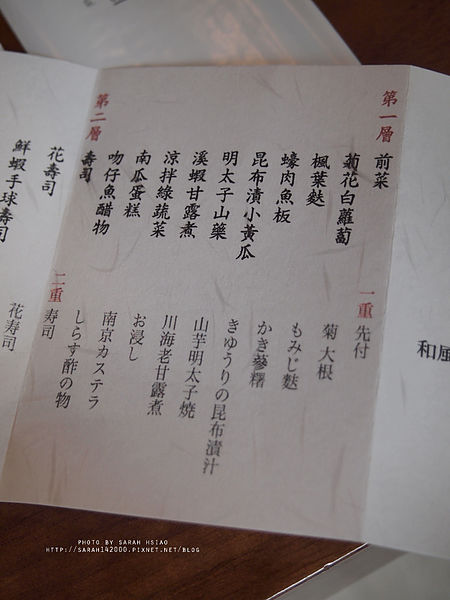 第一層
前菜
菊花白蘿蔔
楓葉麩
蠔肉魚板
昆布漬小黃瓜
明太子山藥
溪蝦甘露煮
涼拌綠蔬菜
南瓜蛋糕
吻仔魚醋物
第二層
壽司
花壽司
鮮蝦手球壽司
一重
先付
菊大根
もみじ麩
きゆうりの昆布漬汁
山芋明太子焼
川海老甘露煮
お浸し
南京カステラ
しらす酢の物
二重
寿司
花寿司
和風
PHOTO BY SARAH HSIAO
HTTP://SARAH142000.PIXNET.NET/BLOG